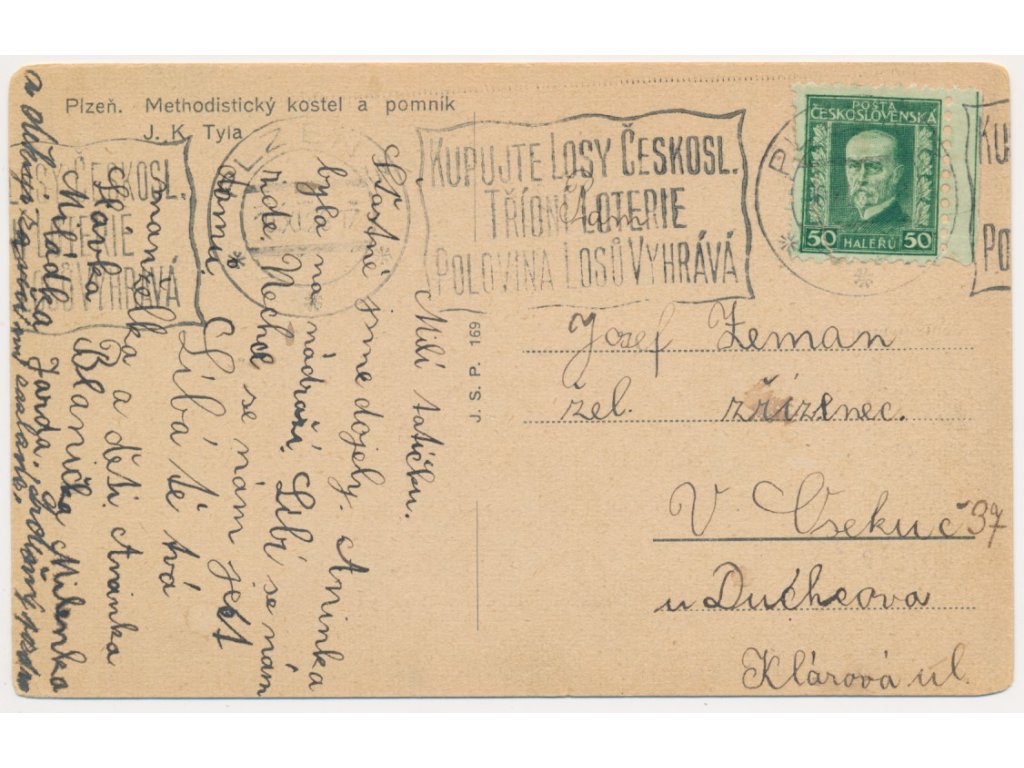 Plzeň. Methodistický kostel a pomník
J. K. Tyla
POŠTA
ČESKOSLOVENSKÁ
50 HALÉŘŮ 50
KUPUJTE LOSY ČESKOSL.
TŘÍDNÍ LOTERIE
POLOVINA LOSŮ VYHRÁVÁ
ČESKOSL.
VYHRÁVÁ
KU
PO
J. S. P. 169
Milí tatíčku.
Šťastně jsme dojely. Aninka
byla na nádraží. Líbí se nám
zde. Nechce se nám jet
domů. Líbá tě tvá
manželka a děti. Aninka
Slávka Blanička Milenka
Miládka Jarda,
a děkuji za
Pan
Jozef Zeman
žel. zřízenec.
V Oseku č 37
u Duchcova
Klárová ul.